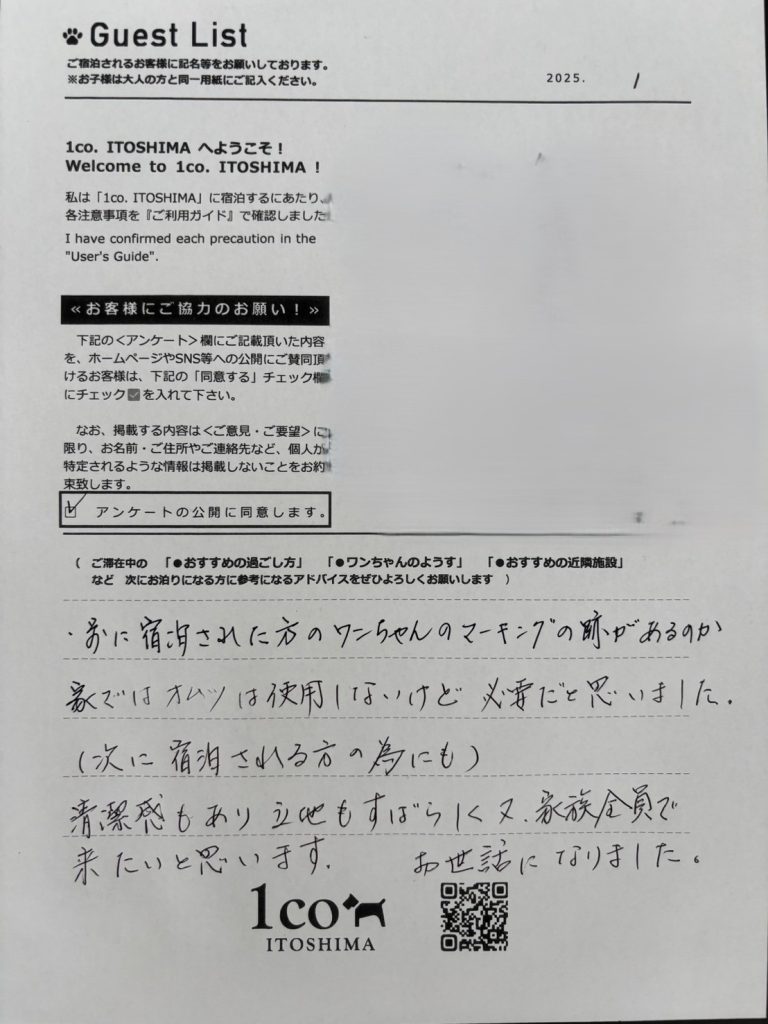 Guest List
ご宿泊されるお客様に記名等をお願いしております。
※お子様は大人の方と同一用紙にご記入ください。
2025. /
1co. ITOSHIMA へようこそ！
Welcome to 1co. ITOSHIMA !
私は「1co. ITOSHIMA」に宿泊するにあたり、
各注意事項を『ご利用ガイド』で確認しました
I have confirmed each precaution in the
"User's Guide".
≪お客様にご協力のお願い！≫
下記の＜アンケート＞欄にご記載頂いた内容
を、ホームページやSNS等への公開にご賛同頂
けるお客様は、下記の「同意する」チェック欄
にチェック☑を入れて下さい。
なお、掲載する内容は＜ご意見・ご要望＞に
限り、お名前・ご住所やご連絡先など、個人が
特定されるような情報は掲載しないことをお約
束致します。
☑ アンケートの公開に同意します。
（ ご滞在中の 「●おすすめの過ごし方」 「●ワンちゃんのようす」 「●おすすめの近隣施設」
など 次にお泊りになる方に参考になるアドバイスをぜひよろしくお願いします ）
・前に宿泊された方のワンちゃんのマーキングの跡があるのか
家ではオムツは使用しないけど 必要だと思いました。
(次に宿泊される方の為にも)
清潔感もあり 立地もすばらしく又、家族全員で
来たいと思います. お世話になりました。
1co
ITOSHIMA